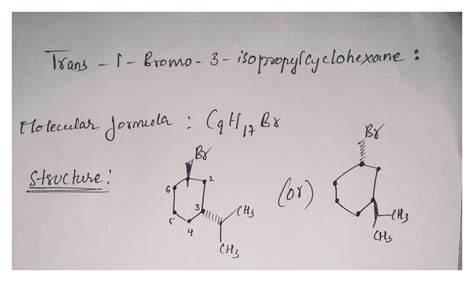 Trans - 1 - Bromo - 3 - isopropylcyclohexane :
Molecular formula : C9H17Br
Structure :
Br
6
2
3
5
4
CH3
CH3
(or)
Br
CH3
CH3